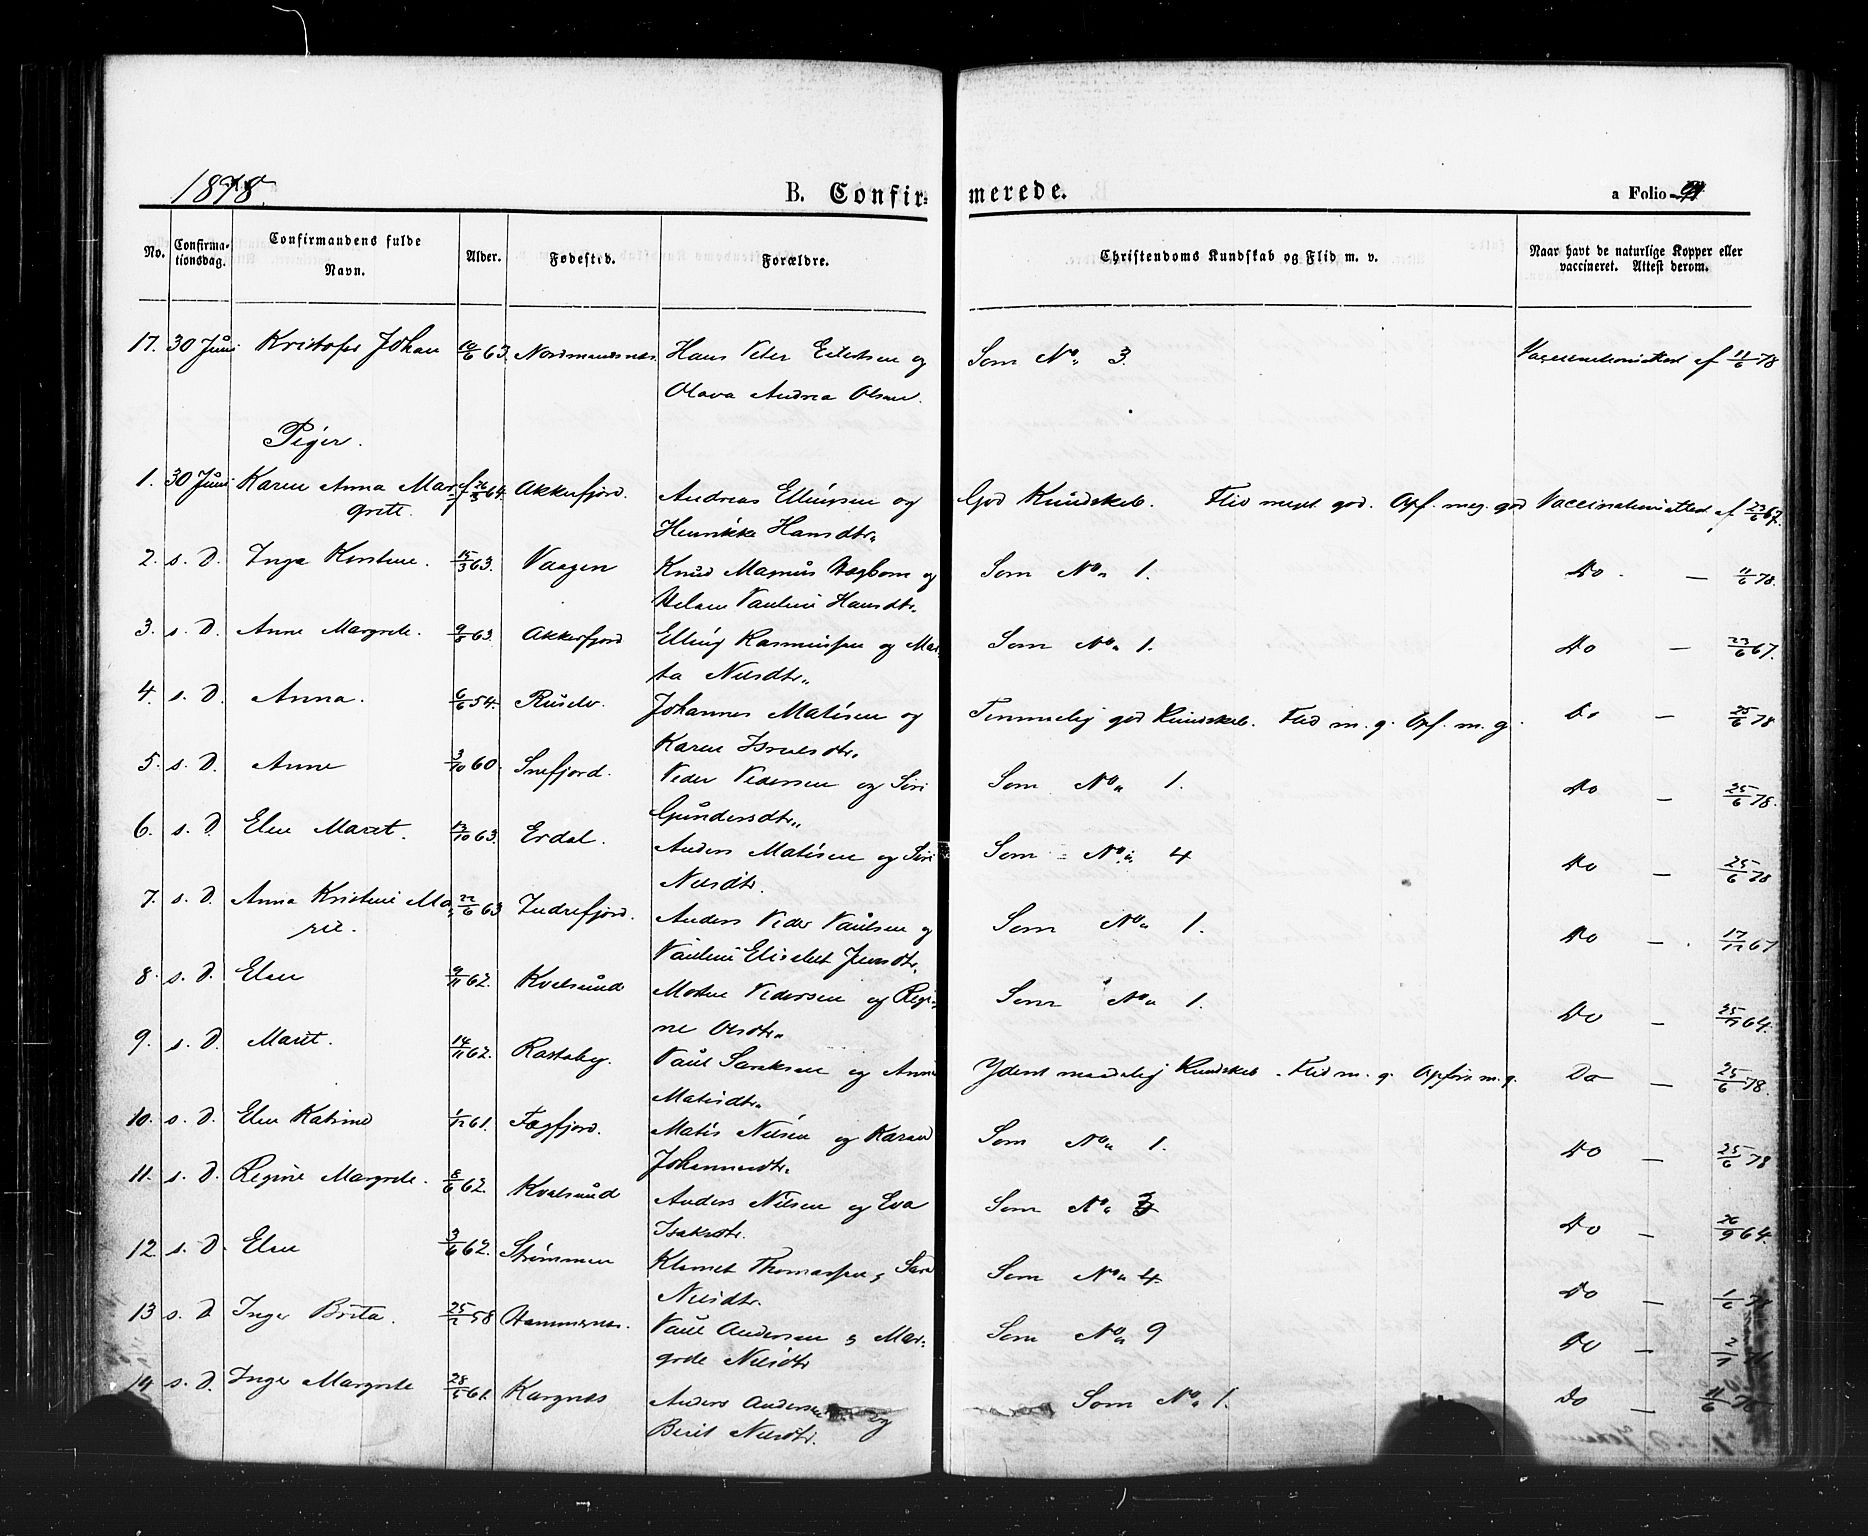 1878.
B. Confirmerede.
a Folio 94
No. Confirmationsdag. Confirmandens fulde Navn. Alder. Fødested. Forældre. Christendoms Kundskab og Flid m. v. Naar havt de naturlige Kopper eller vaccineret. Attest derom.
17. 30 Juni Kristofer Johan 63. Nordmandsnæs. Hans Peter Eilertsen og Som No. 3. Vaccinationsattest af 11/6 78
Olava Andrea Olsen.
Piger.
1. 30 Juni Karen Anna Mar- f. 64. Akkerfjord. Andreas Ellingsen og God Kundskab. Flid meget god. Opf. meg. god Vaccinationsattest af 23/6 67.
grete. Henrikke Hansdtr.
2. s. D. Inga Kirstine. 15/3 63. Vaagen Knud Magnus og Som No. 1. Do. — 11/6 78.
Pauline Hansdtr.
3. s. D. Anne Margrete. 63. Akkerfjord Elling Rasmussen og Mar- Som No. 1. Do — 23/6 67.
ta Nilsdtr.
4. s. D. Anna. 6/6 54. Ruselv. Johannes Matisen og Temmelig god Kundskab. Flid m. g. Opf. m. g. Do — 25/6 78
Karen Israelsdtr.
5. s. D. Anne 3/10 60. Snefjord. Peder Pedersen og Siri Som No. 1. Do — 25/6 78.
Gundersdtr.
6. s. D. Elen Maret. 13/10 63. Erdal. Anders Matisen og Siri Som No. 4 Do — 25/6 78
Nilsdtr.
7. s. D. Anna Kristine Ma- 22/6 63 Indrefjord. Anders Peder Paulsen og Som No. 1. Do — 17/12 67
rie. Pauline Elisabet Jensdtr.
8. s. D. Elen 9/11 62. Kvalsund Morten Pedersen og Regi- Som No. 1. Do — 64.
ne Olsdtr.
9. s. D. Marit. 14/11 62. Rastaby. Paul Saraksen og Anne Yderst maadelig Kundskab. Flid m. g. Opførs. m. g. Do — 25/6 78.
Matisdtr.
10. s. D. Elen Katrine 1/12 61. Fægfjord. Matis Nilsen og Karen Som No. 1. Do — 25/6 78
Johannesdtr.
11. s. D. Regine Margrete. 8/6 62. Kvalsund Anders Nilsen og Eva Som No. 3 Do — 26/9 64.
Isaksdtr.
12. s. D. Elen 3/6 62. Strømmen Klemet Thomassen og Sara Som No. 4. Do — 1/6 78
Nilsdtr.
13 s. D. Inger Brita. 58 Hammernes. Paul Andersen og Mar- Som No. 9 Do —
grete Nilsdtr
14 s. D. Inger Margrete 61. Kargnæs Anders Andersen og Som No. 1. Do — 11/6
Berit Nilsdtr.